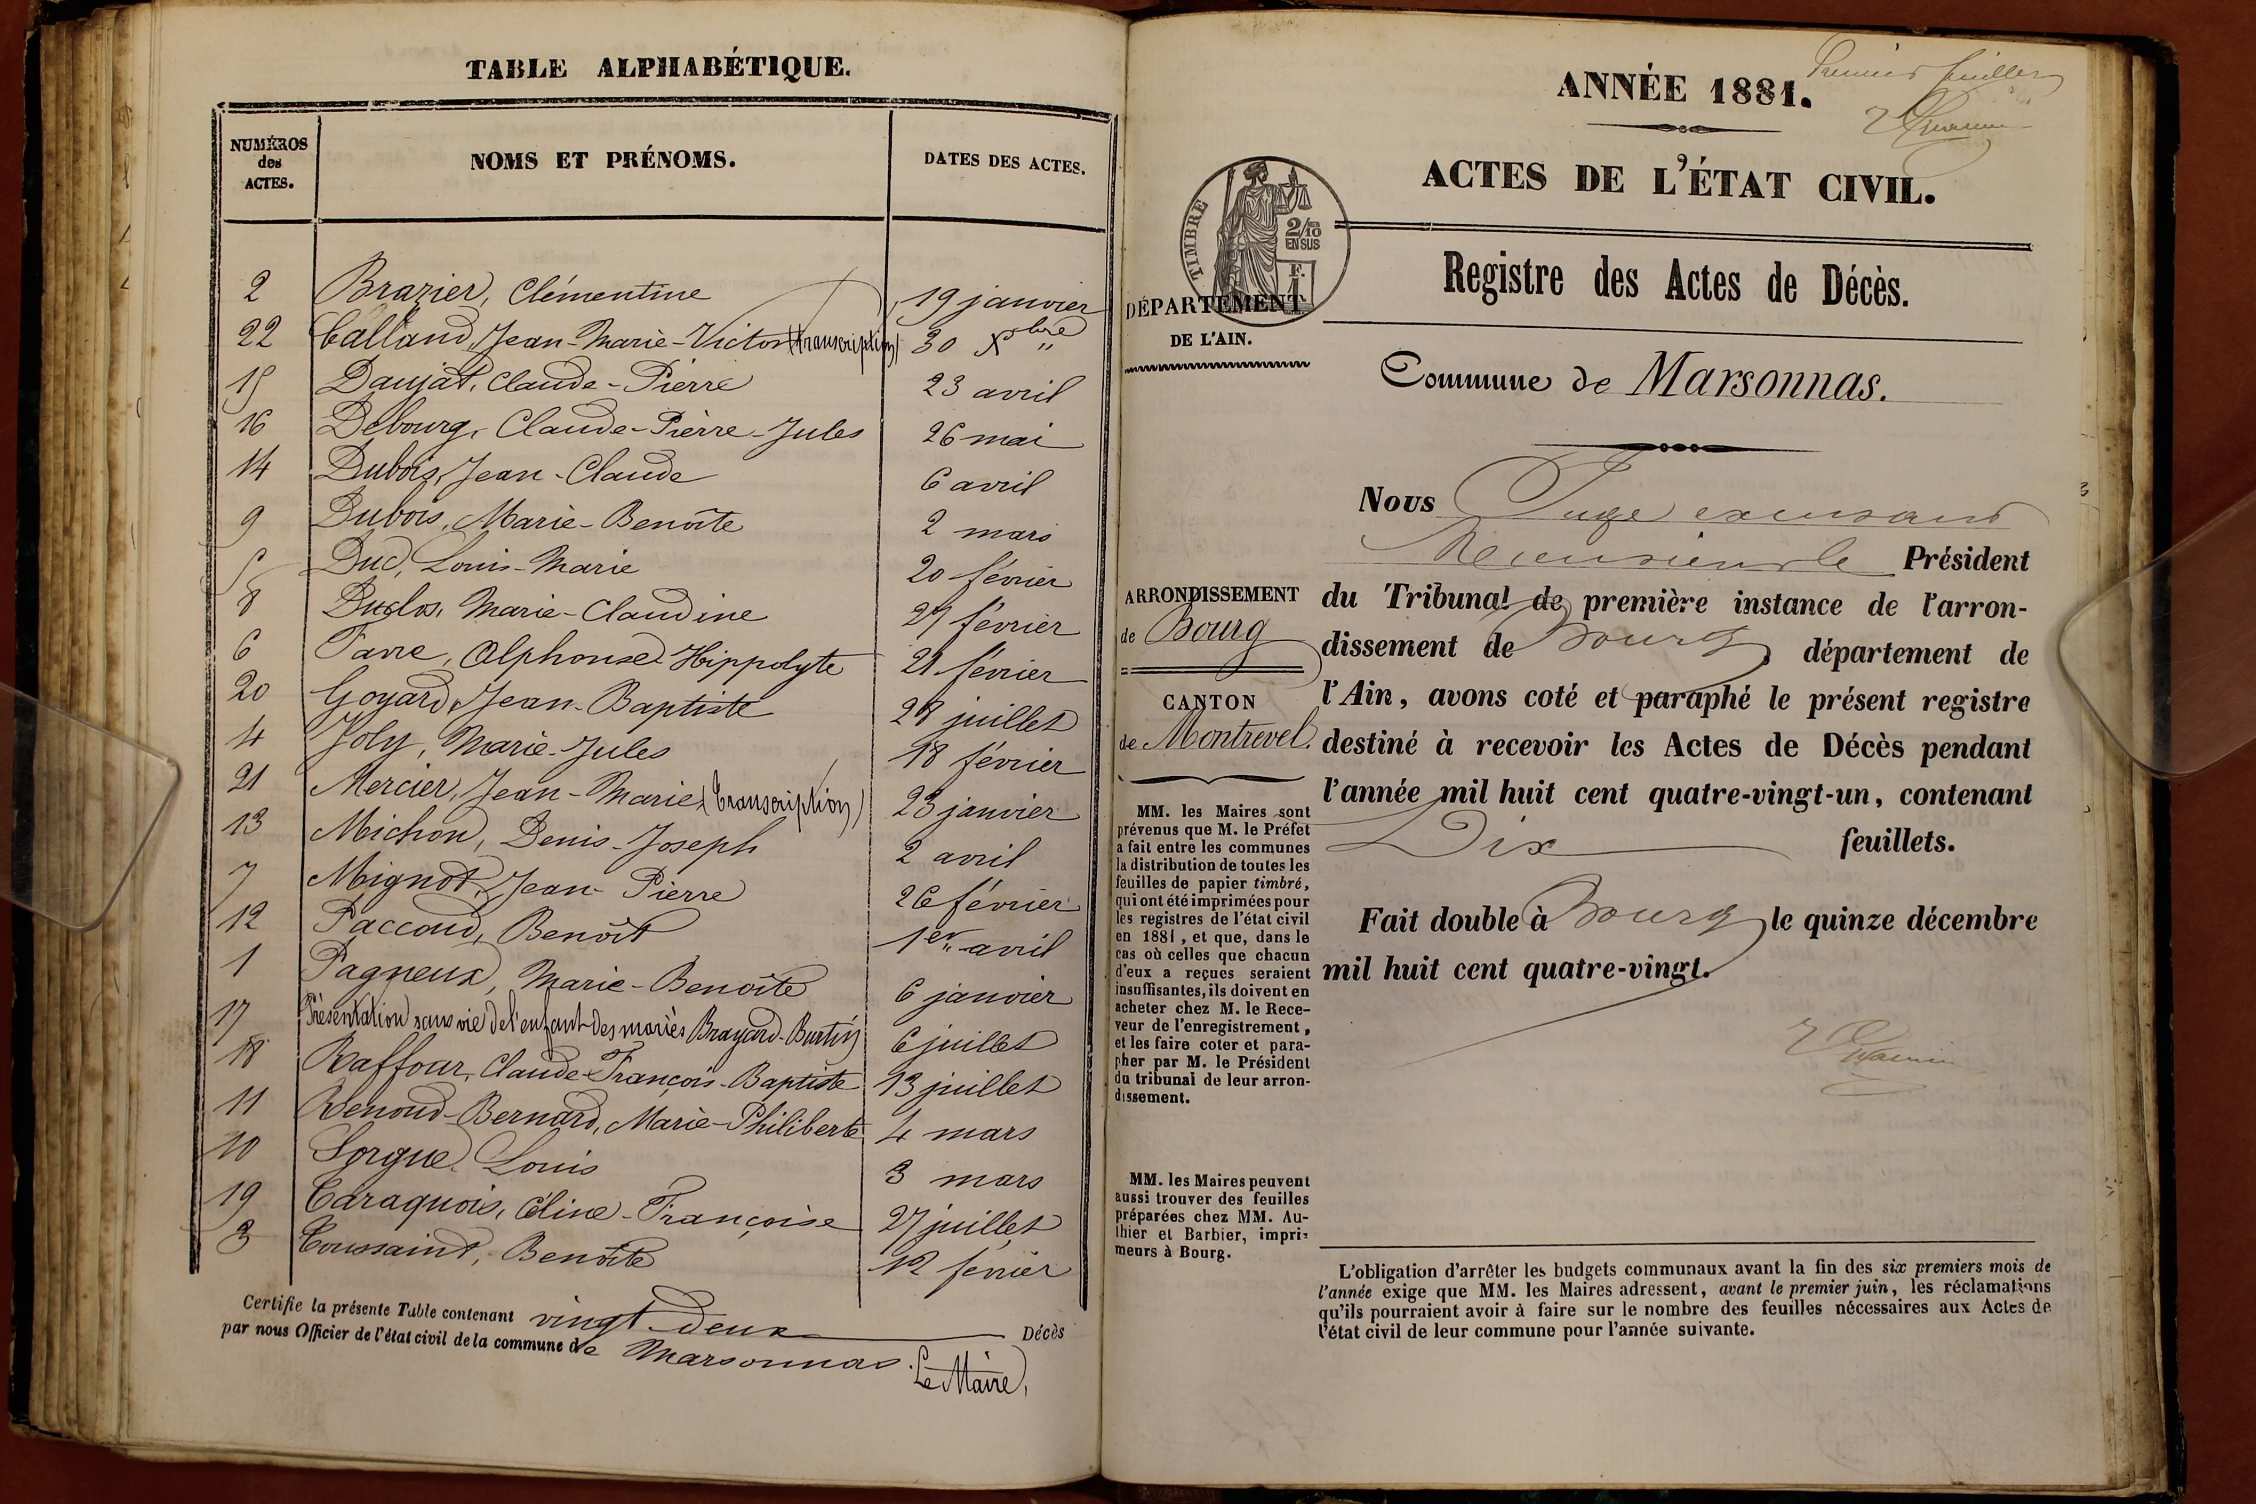 TABLE ALPHABÉTIQUE.
NUMÉROS des ACTES. NOMS ET PRÉNOMS. DATES DES ACTES.
2 Brazier, Clémentine 19 janvier
22 Calland, Jean-Marie-Victor (transcription) 30 Xbre
15 Daujat, Claude-Pierre 23 avril
16 Debourg, Claude-Pierre-Jules 26 mai
14 Dubois, Jean-Claude 6 avril
9 Dubois, Marie-Benoîte 2 mars
5 Duc, Louis-Marie 20 février
8 Duclos, Marie-Claudine 27 février
6 Favre, Alphonse Hippolyte 21 février
20 Goyard, Jean-Baptiste 28 juillet
4 Joly, Marie-Jules 18 février
21 Mercier, Jean-Marie (transcription) 23 janvier
13 Michon, Denis-Joseph 2 avril
7 Mignot, Jean-Pierre 26 février
12 Paccoud, Benoît 1er avril
1 Pagneux, Marie-Benoîte 6 janvier
17 Présentation sans vie de l'enfant des mariés Brayard-Burtin 6 juillet
18 Raffour, Claude-François-Baptiste 13 juillet
11 Renoud-Bernard, Marie-Philiberte 4 mars
10 Sorgue, Louis 3 mars
19 Taraquois, Céline-Françoise 27 juillet
3 Toussaint, Benoîte 12 février
Certifie la présente Table contenant vingt-deux Décès
par nous Officier de l'état civil de la commune de Marsonnas.
Le Maire,
Premier feuillet
ANNÉE 1881.
ACTES DE L'ÉTAT CIVIL.
TIMBRE
2/10
EN SUS
F.
1
DÉPARTEMENT
DE L'AIN.
Registre des Actes de Décès.
Commune de Marsonnas.
ARRONDISSEMENT
de Bourg
CANTON
de Montrevel.
MM. les Maires sont
prévenus que M. le Préfet
a fait entre les communes
la distribution de toutes les
feuilles de papier timbré,
qui ont été imprimées pour
les registres de l'état civil
en 1881, et que, dans le
cas où celles que chacun
d'eux a reçues seraient
insuffisantes, ils doivent en
acheter chez M. le Rece-
veur de l'enregistrement,
et les faire coter et para-
pher par M. le Président
du tribunal de leur arron-
dissement.
MM. les Maires peuvent
aussi trouver des feuilles
préparées chez MM. Au-
thier et Barbier, impri-
meurs à Bourg.
Nous Juge
Monsieur le Président
du Tribunal de première instance de l'arron-
dissement de Bourg, département de
l'Ain, avons coté et paraphé le présent registre
destiné à recevoir les Actes de Décès pendant
l'année mil huit cent quatre-vingt-un, contenant
Dix feuillets.
Fait double à Bourg le quinze décembre
mil huit cent quatre-vingt.
L'obligation d'arrêter les budgets communaux avant la fin des six premiers mois de
l'année exige que MM. les Maires adressent, avant le premier juin, les réclamations
qu'ils pourraient avoir à faire sur le nombre des feuilles nécessaires aux Actes de
l'état civil de leur commune pour l'année suivante.